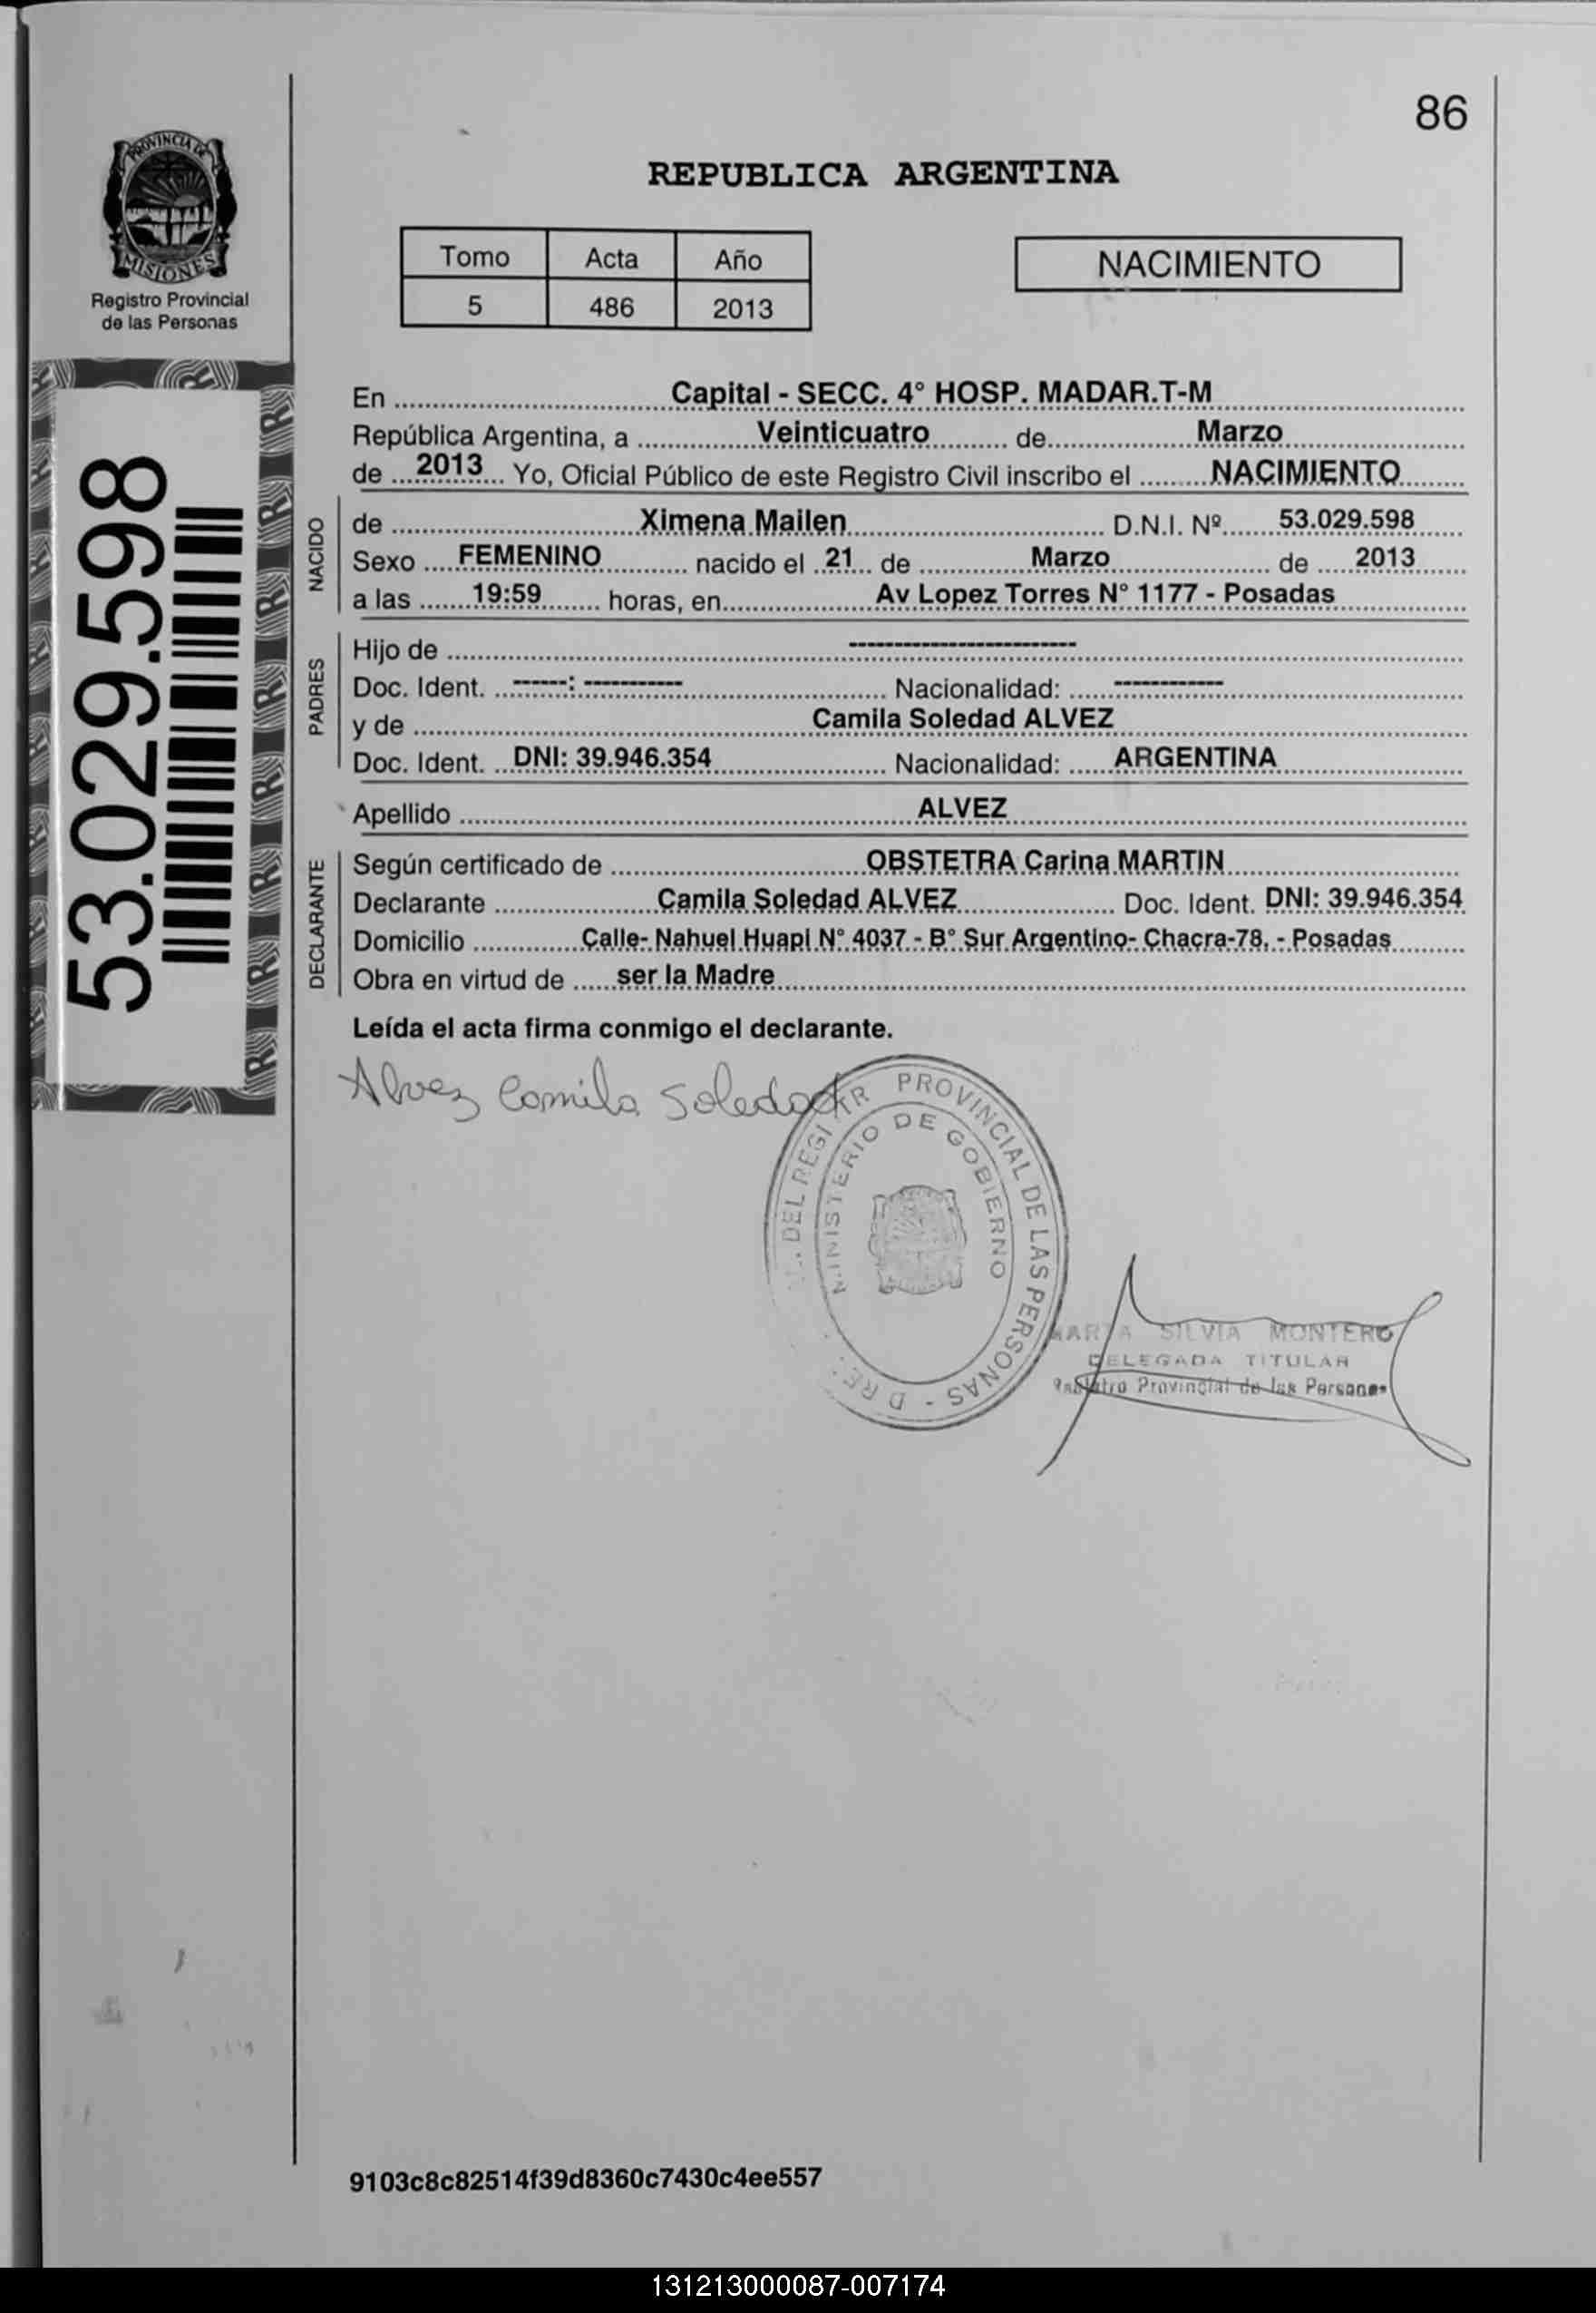 86
PROVINCIA DE
MISIONES
Registro Provincial
de las Personas
REPUBLICA ARGENTINA
Tomo Acta Año
5 486 2013
NACIMIENTO
53.029.598
En Capital - SECC. 4° HOSP. MADAR.T-M
República Argentina, a Veinticuatro de Marzo
de 2013 Yo, Oficial Público de este Registro Civil inscribo el NACIMIENTO
NACIDO
de Ximena Mailen D.N.I. Nº 53.029.598
Sexo FEMENINO nacido el 21 de Marzo de 2013
a las 19:59 horas, en Av Lopez Torres N° 1177 - Posadas
PADRES
Hijo de -------------------------
Doc. Ident. ------: ----------- Nacionalidad: ------------
y de Camila Soledad ALVEZ
Doc. Ident. DNI: 39.946.354 Nacionalidad: ARGENTINA
Apellido ALVEZ
DECLARANTE
Según certificado de OBSTETRA Carina MARTIN
Declarante Camila Soledad ALVEZ Doc. Ident. DNI: 39.946.354
Domicilio Calle- Nahuel Huapi N° 4037 - B° Sur Argentino- Chacra-78. - Posadas
Obra en virtud de ser la Madre
Leída el acta firma conmigo el declarante.
Alvez Camila Soledad
PROVINCIAL DE LAS PERSONAS
MINISTERIO DE GOBIERNO
SILVIA MONTERO
DELEGADA TITULAR
Provincial de las Personas
9103c8c82514f39d8360c7430c4ee557
131213000087-007174